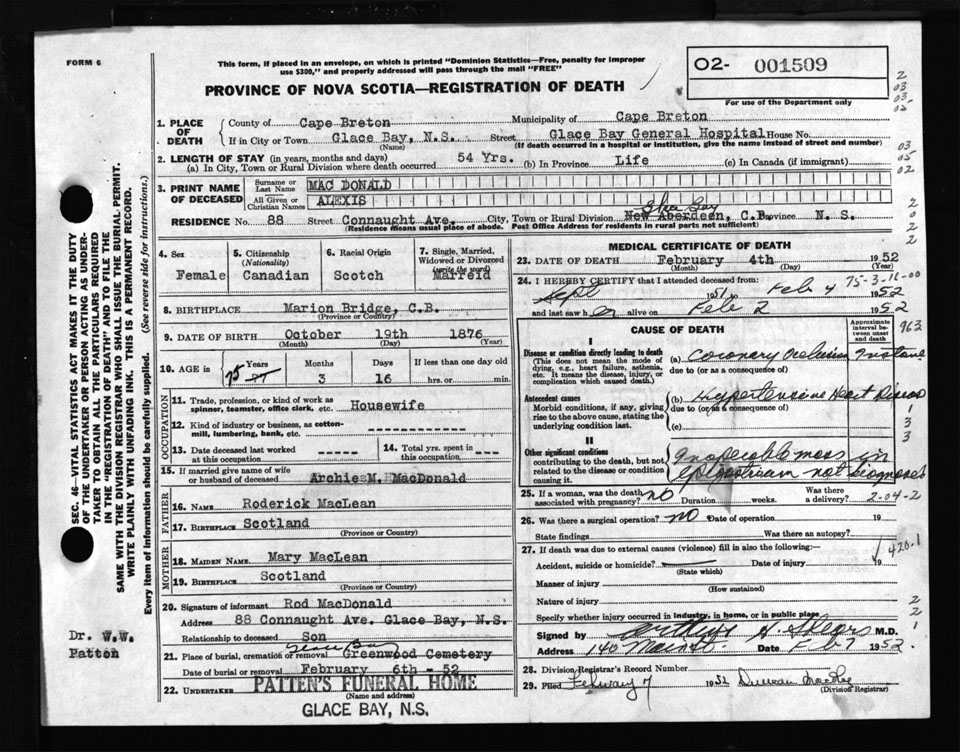 FORM 6
This form, if placed in an envelope, on which is printed "Dominion Statistics—Free, penalty for improper
use $300," and properly addressed will pass through the mail "FREE"
PROVINCE OF NOVA SCOTIA—REGISTRATION OF DEATH
02- 001509
For use of the Department only
1. PLACE OF DEATH
County of Cape Breton Municipality of Cape Breton
If in City or Town Glace Bay, N.S. Street Glace Bay General Hospital House No.
(Name) (If death occurred in a hospital or institution, give the name instead of street and number)
2. LENGTH OF STAY (in years, months and days)
(a) In City, Town or Rural Division where death occurred 54 Yrs. (b) In Province Life (c) In Canada (if immigrant)
3. PRINT NAME OF DECEASED
Surname or Last Name MAC DONALD
All Given or Christian Names ALEXIS
RESIDENCE No. 88 Street Connaught Ave. City, Town or Rural Division Glace Bay New Aberdeen, C.B. Province N. S.
(Residence means usual place of abode. Post Office Address for residents in rural parts not sufficient)
4. Sex Female
5. Citizenship (Nationality) Canadian
6. Racial Origin Scotch
7. Single, Married, Widowed or Divorced (write the word) Marreid
8. BIRTHPLACE Marion Bridge, C.B.
(Province or Country)
9. DATE OF BIRTH October 19th 1876
(Month) (Day) (Year)
10. AGE in 75 Years 3 Months 16 Days If less than one day old hrs. or min.
OCCUPATION
11. Trade, profession, or kind of work as spinner, teamster, office clerk, etc. Housewife
12. Kind of industry or business, as cotton-mill, lumbering, bank, etc. - - - - -
13. Date deceased last worked at this occupation - - - - -
14. Total yrs. spent in this occupation - - - - -
15. If married give name of wife or husband of deceased Archie M. MacDonald
FATHER
16. Name Roderick MacLean
17. Birthplace Scotland
(Province or Country)
MOTHER
18. Maiden Name Mary MacLean
19. Birthplace Scotland
(Province or Country)
20. Signature of informant Rod MacDonald
Address 88 Connaught Ave. Glace Bay, N.S.
Relationship to deceased Son
21. Place of burial, cremation or removal Glace Bay Greenwood Cemetery
Date of burial or removal February 6th - 52
22. UNDERTAKER PATTEN'S FUNERAL HOME
(Name and address)
GLACE BAY, N.S.
MEDICAL CERTIFICATE OF DEATH
23. DATE OF DEATH February 4th 1952
(Month) (Day) (Year)
24. I HEREBY CERTIFY that I attended deceased from: 75-3-16-00
Sept 1951 to Feb 4 1952
and last saw her alive on Feb 2 1952
CAUSE OF DEATH
Approximate interval between onset and death
I
Disease or condition directly leading to death
(This does not mean the mode of dying, e.g., heart failure, asthenia, etc. It means the disease, injury, or complication which caused death.)
(a) Coronary Occlusion
due to (or as a consequence of)
Antecedent causes
Morbid conditions, if any, giving rise to the above cause, stating the underlying condition last.
(b) Hypertensive Heart Disease
due to (or as a consequence of)
(c)
II
Other significant conditions
contributing to the death, but not related to the disease or condition causing it.
Inoperable mass in
Epigastrium not diagnosed
25. If a woman, was the death associated with pregnancy? no Duration weeks. Was there a delivery? 2-04-2
26. Was there a surgical operation? no Date of operation 19
State findings Was there an autopsy?
27. If death was due to external causes (violence) fill in also the following:—
420.1
Accident, suicide or homicide? Date of injury 19
(State which)
Manner of injury
(How sustained)
Nature of injury
Specify whether injury occurred in industry, in home, or in public place
Signed by M.D.
Address 140 Main St. Date Feb 7 1952
28. Division Registrar's Record Number
29. Filed February 7 1952 Duncan MacRae
(Division Registrar)
SEC. 46—VITAL STATISTICS ACT MAKES IT THE DUTY
OF THE UNDERTAKER OR PERSON ACTING AS UNDER-
TAKER TO OBTAIN ALL THE PARTICULARS REQUIRED
IN THE "REGISTRATION OF DEATH" AND TO FILE THE
SAME WITH THE DIVISION REGISTRAR WHO SHALL ISSUE THE BURIAL PERMIT.
WRITE PLAINLY WITH UNFADING INK. THIS IS A PERMANENT RECORD.
Every item of information should be carefully supplied. (See reverse side for instructions.)
Dr. W.W.
Patton